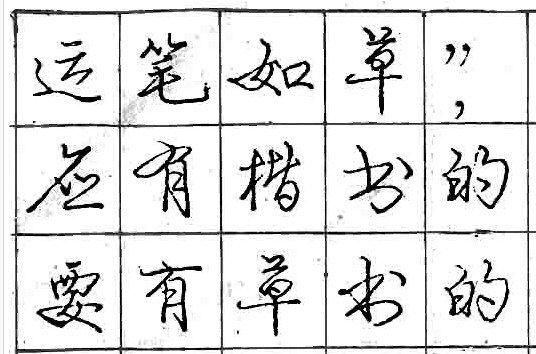 运笔如草”，
应有楷书的
要有草书的